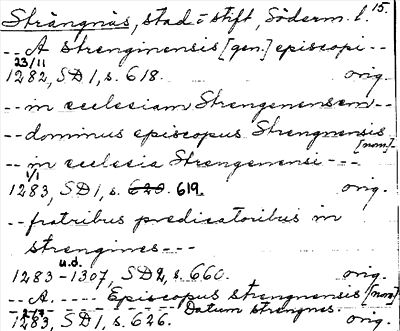 Strängnäs, stad o stift, Söderm. l. 15.
-- A strenginensis [gen.] episcopi --
23/11
1282, SD 1, s. 618. orig.
-- in ecclesiam Strengenensem --
-- dominus episcopus Strengnensis [nom.] --
-- in ecclesia Strengenensi ---
1/1
1283, SD 1, s. 620. 619. orig.
-- fratribus predicatoribus in
strengines ---
u.d.
1283-1307, SD 2, s. 660. orig.
-- A. ---- Episcopus strengnensis [nom]
-- Datum strengnes.
1283, SD 1, s. 626. orig.